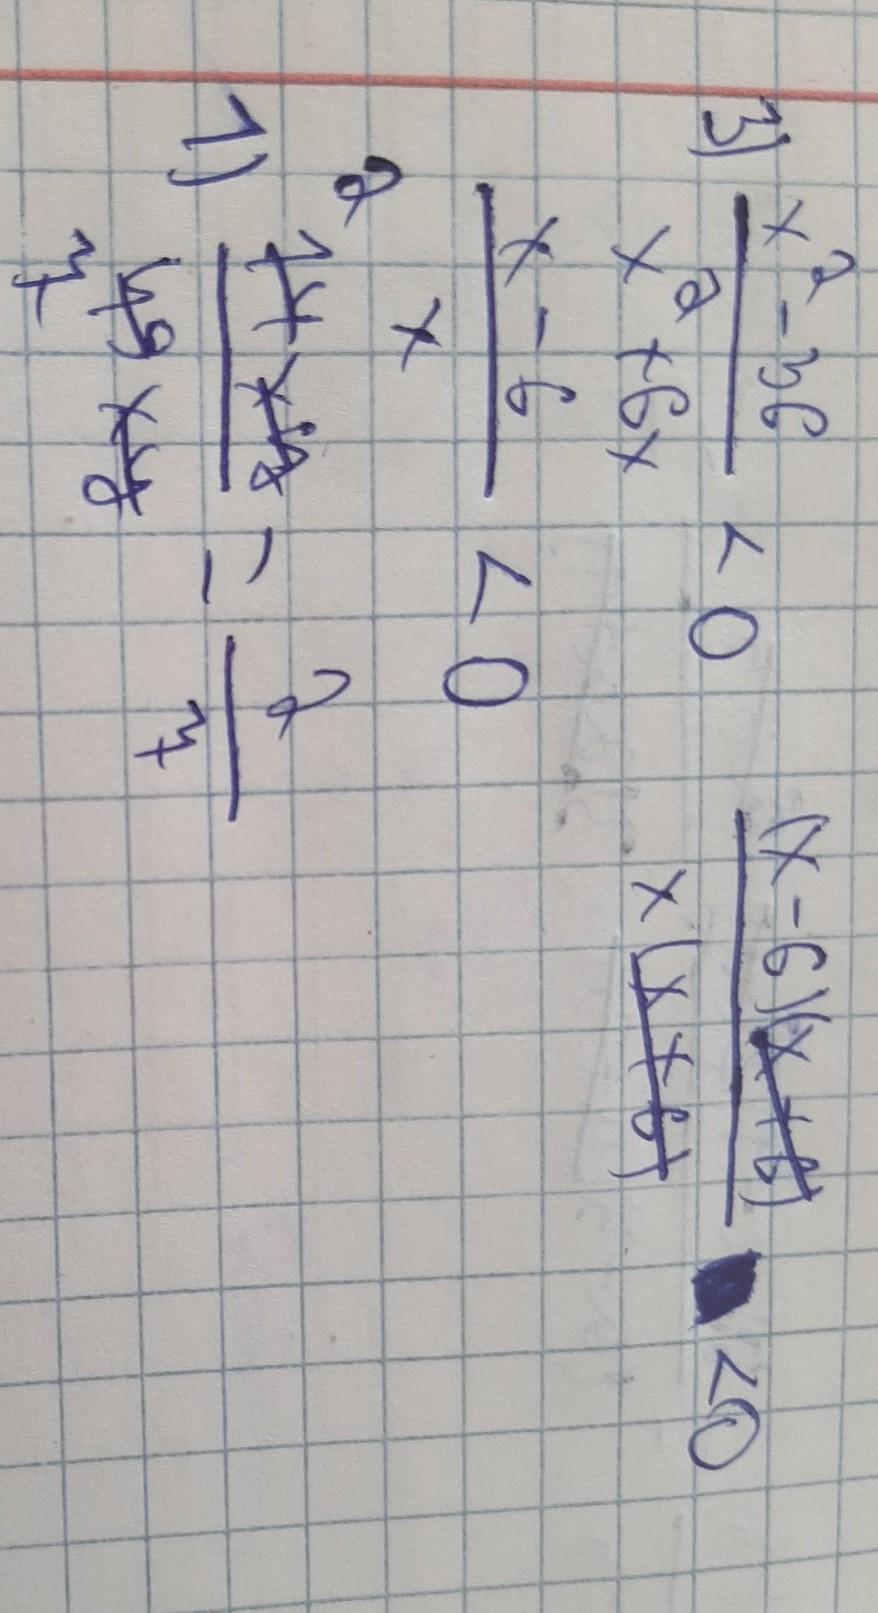 3) x² - 36 / x² + 6x < 0   (x - 6)(x + 6) / x(x + 6) < 0
x - 6 / x < 0
1) 2 14 / 7 49 = 2 / 7